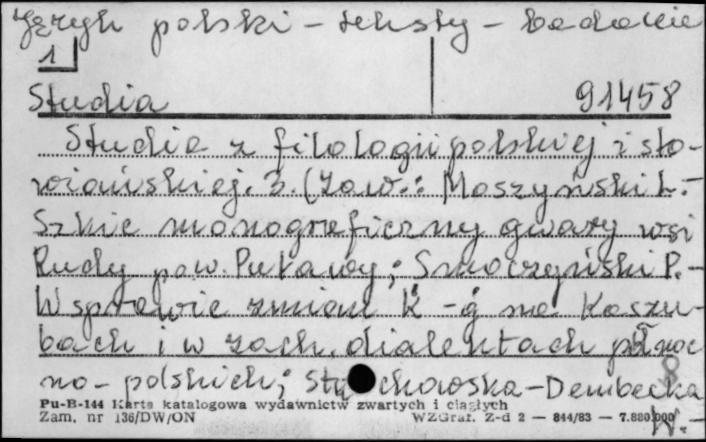 Język polski - teksty - badanie
1
Studia 91458
Studia z filologii polskiej i sło-
wiańskiej. 3. (Zaw.: Moszyński L. -
Szkic monograficzny gwary wsi
Rudy pow. Puławy; Smoczyński P. -
W sprawie zmian K' -g' na Kaszu-
bach i w zach. dialektach północ
no-polskich; Sty chowska-Dembecka
Pu-B-144 Karta katalogowa wydawnictw zwartych i ciągłych
Zam. nr 136/DW/ON WZGraf. Z-d 2 — 844/83 — 7.880.000 W. -